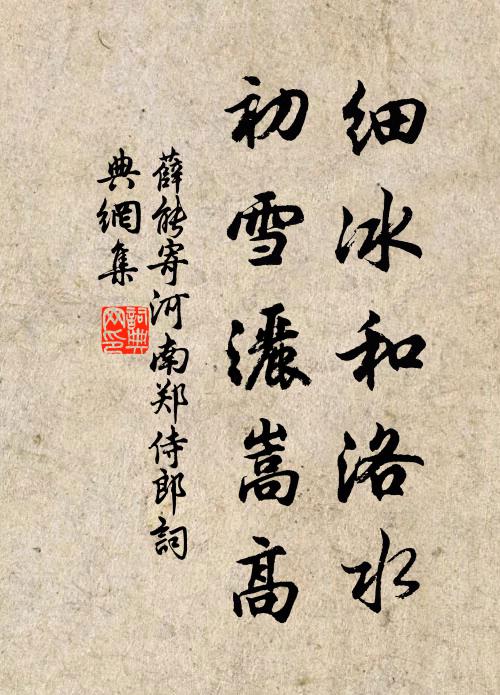 细冰和洛水
初雪灑嵩高
薛能寄河南郑侍郎詞
典網集
詞典
网印